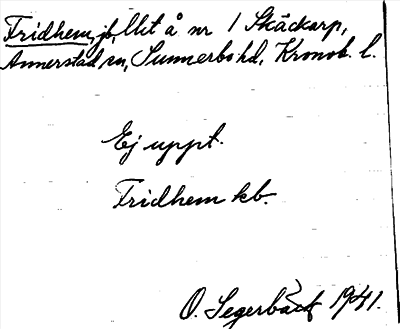 Fridhem, jb, llit å nr 1 Skäckarp,
Annerstad sn, Sunnerbo hd, Kronob. l.
Ej uppt.
Fridhem kb.
O. Segerbäck 1941.